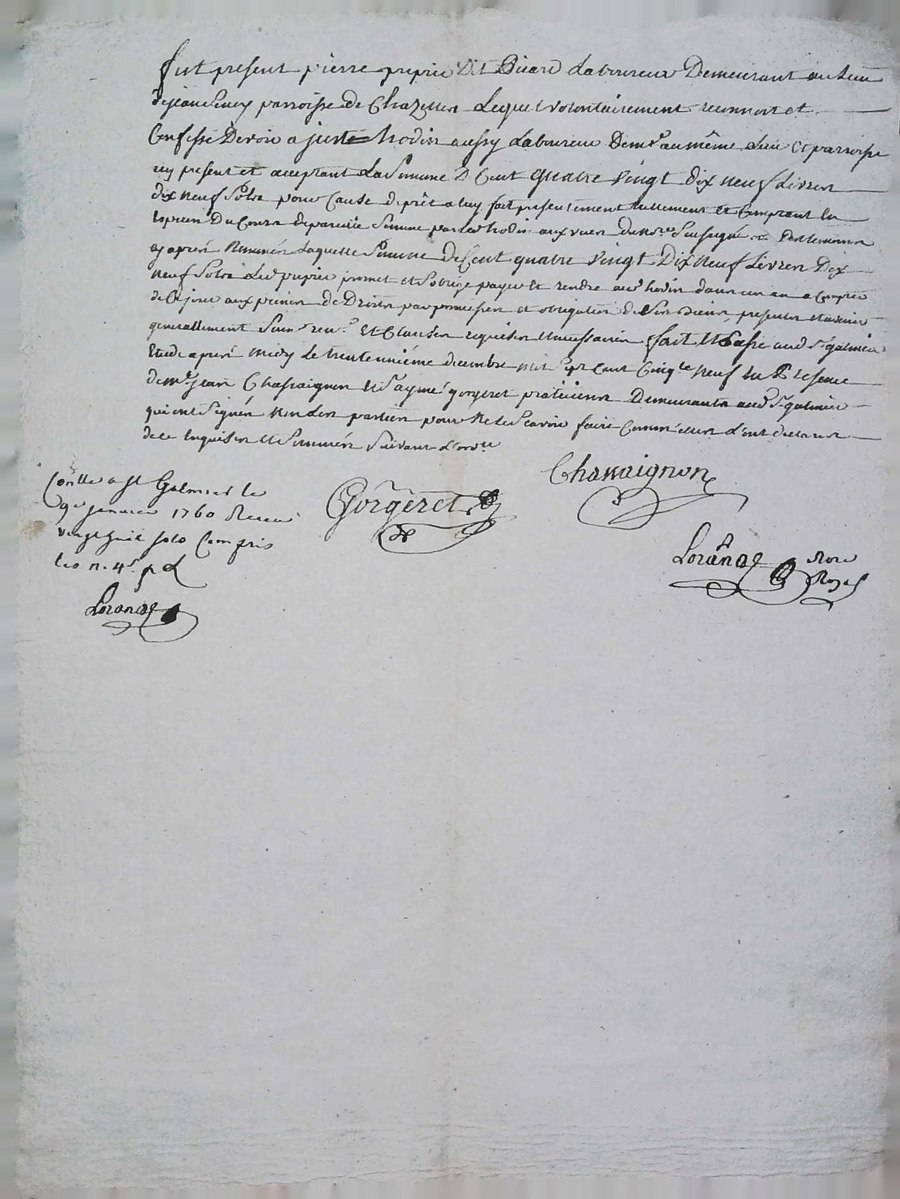 fut present pierre preprie dit Picard Laboureux Demeurant au lieu
parroisse de Chazelles Lequel volontairement reconnoit et
Confesse Devoir a juste hodin aussy Laboureur Dem.t au même Lieu et parroisse
icy present et acceptant La Somme De Cent quatre vingt dix neuf Livres
dix neuf Sols pour Cause de prêt a luy fait presentement reellement et Comptant
du Cours de pareille Somme par led. hodin aux vues du No.re Soussigné et
cy après Nommés Laquelle Somme de Cent quatre vingt Dix neuf Livres Dix
neuf Sols led. preprie promet et S'oblige payer et rendre aud. hodin dans un an a Compter
de Ce jour aux peines de Droits par promission et obligation de Ses Biens presents et avenir
generallement et Clauses requises et necessaires fait et Passé aud. St. galmier
Etude après midy Le trente unième decembre mil sept Cent Cinq.te Neuf En Presence
de M.e Jean Chassaignon et Sr aymé gorgeret praticiens Demeurants aud. St. galmier
qui ont Signés Non les parties pour Ne le Scavoir faire Comme elles ont declaré
de ce Enquises et Sommées Suivant l'ord.ce
Con.lle a St Galmier le
9e janvier 1760 Receu
vingt huit sols Compris
les n. 4s. p d
Gorgeret
Chassaignon
Lorange No.re
Royal
Lorange